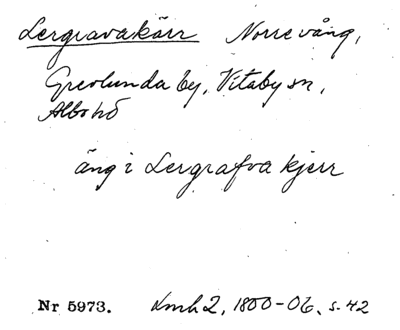 Lergravakärr Norrevång,
Grevlunda by, Vitaby sn,
Albo hd
äng i Lergrafva kjerr
Nr 5973. Lmh 2, 1800-06, s. 42